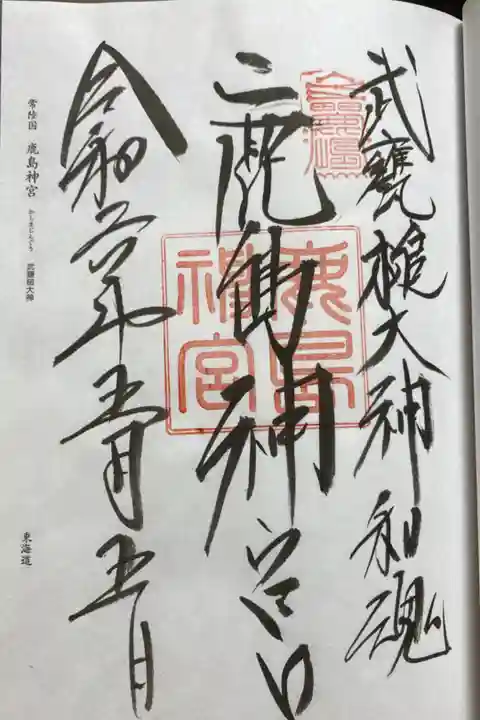 武甕槌大神和魂
鹿島神宮
鹿島神宮
令和六年五月五日
常陸国 鹿島神宮 かしまじんぐう 武甕槌大神
東海道